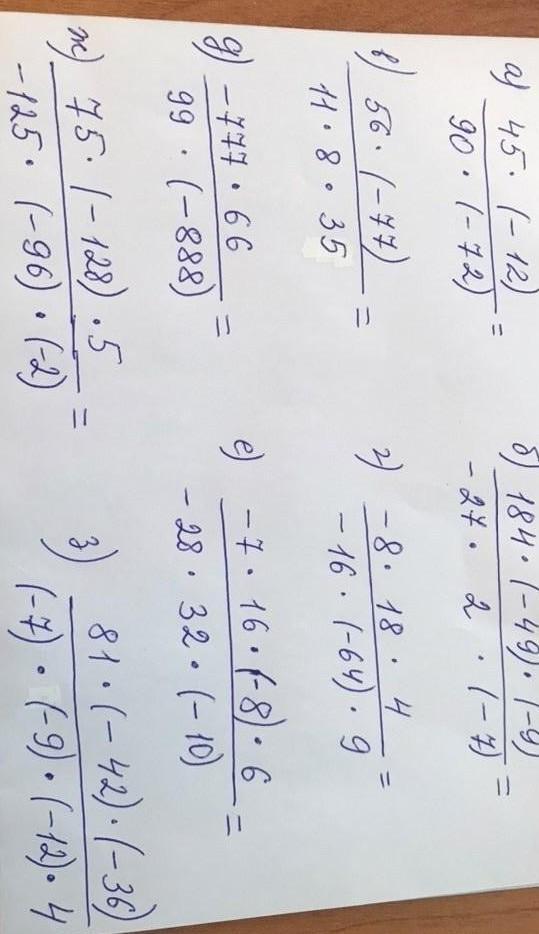 а) 45 · (−12) / 90 · (−72) =
б) 184 · (−49) · (−9) / −27 · 2 · (−7) =
в) 56 · (−77) / 11 · 8 · 35 =
г) −8 · 18 · 4 / −16 · (−64) · 9 =
д) −777 · 66 / 99 · (−888) =
е) −7 · 16 · (−8) · 6 / −28 · 32 · (−10) =
ж) 75 · (−128) · 5 / −125 · (−96) · (−2) =
з) 81 · (−42) · (−36) / (−7) · (−9) · (−12) · 4